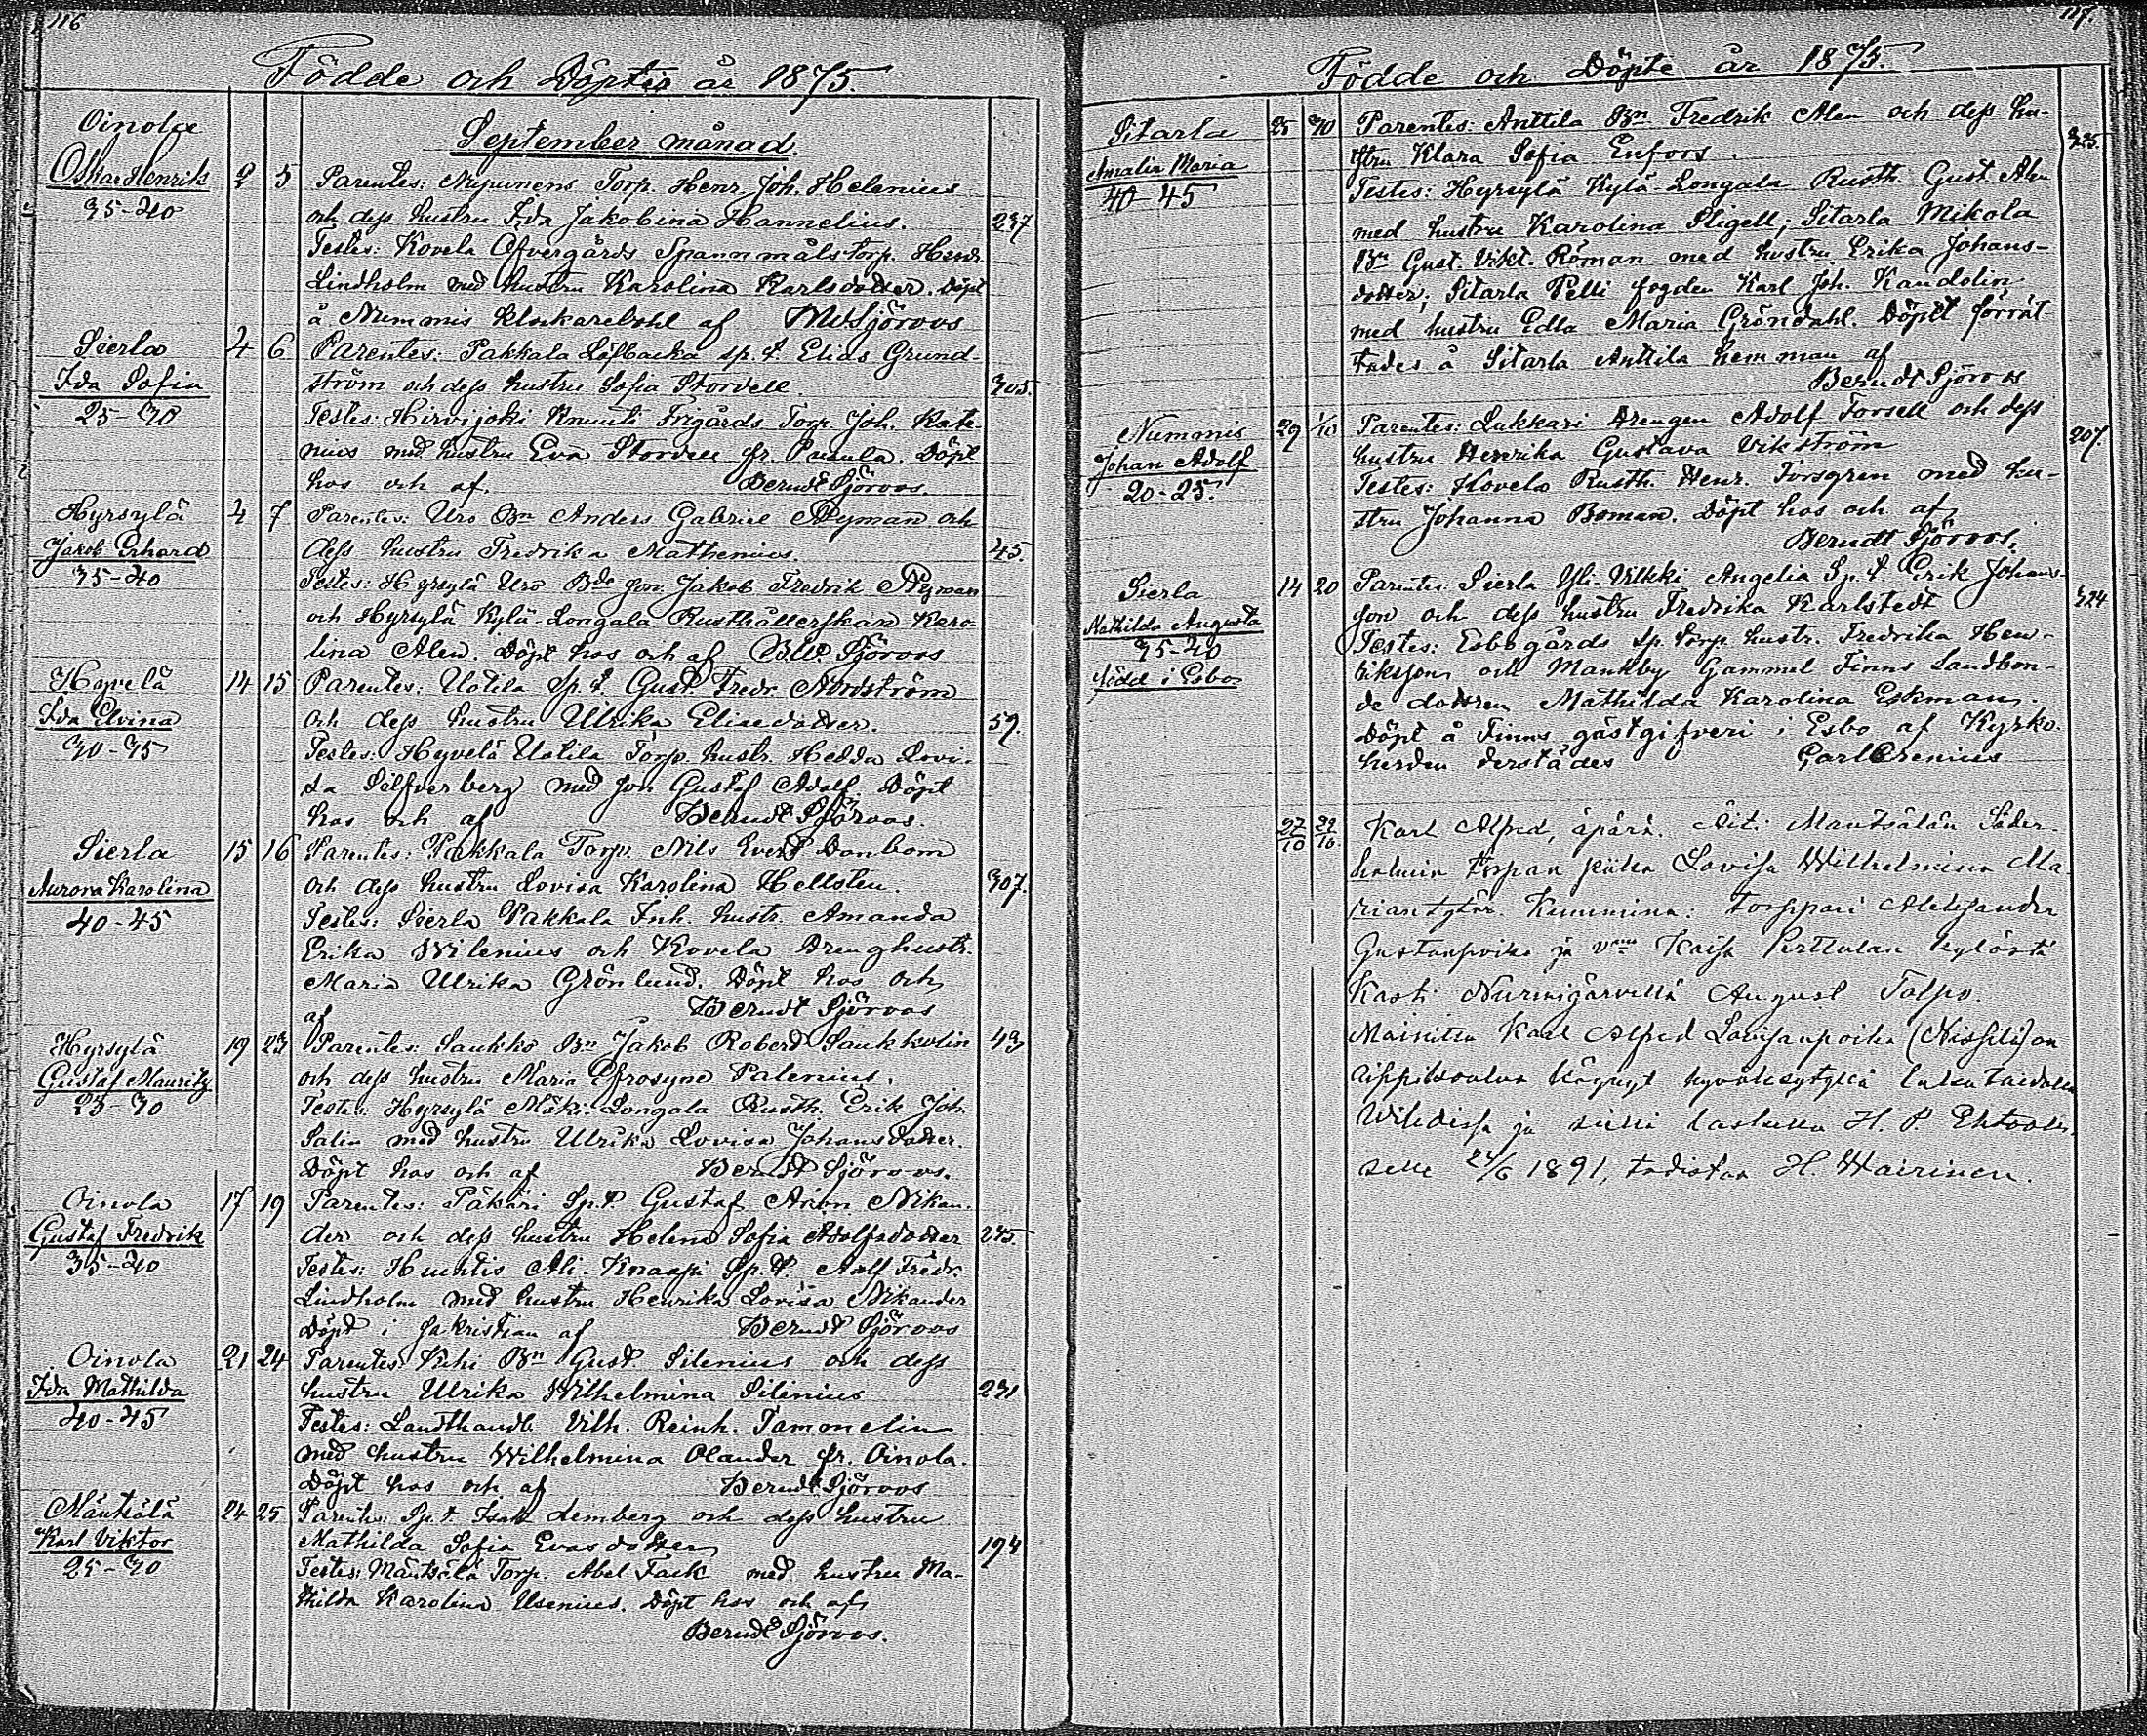 116
Födde och Döpte år 1875.
September månad
Oinola
Oskar Henrik 2 5
35-40
Parentes: Nypunens Torp. Henr. Joh. Helenius
och dess hustru Ida Jakobina Hannelius. 237
Testes: Kovela Öfvergårds Spannmålstorp. Hend.
Lindholm med hustru Karolina Karlsdotter. Döpt
å Nummis klockarebohl af BW Sjöroos
Sierla 4 6
Ida Sofia
25-30
Parentes: Pakkala Löfbacka sp. t. Elias Grund-
ström och dess hustru Sofia Stordell 305.
Testes: Hirvijoki Knuuti Frigårds Torp. Joh. Kate-
nius med hustru Eva Stordell fr. Pusula. Döpt
hos och af. Berndt Sjöroos.
Hyrsylä 4 7
Jakob Erhard
35-40
Parentes: Uro Bn Anders Gabriel Nyman och
dess hustru Fredrika Mathenius 45.
Testes: Hyrsylä Uro Bde son Jakob Fredrik Nyman
och Hyrsylä Kylä-Longala Rusthållerskan Karo-
lina Alen. Döpt hos och af B.W. Sjöroos
Hyvelä 14 15
Ida Elvina
30-35
Parentes: Uotila Sp. t. Gust. Fredr. Nordström
och dess hustru Ulrika Eliedotter. 59.
Testes: Hyvelä Uotila Torp. hustr. Hedda Lovi-
sa Silfverberg med son Gustaf Adolf. Döpt
hos och af Berndt Sjöroos.
Sierla 15 16
Aurora Karolina
40-45
Parentes: Pakkala Torp. Nils Evert Donbom
och dess hustru Lovisa Karolina Hellsten. 307.
Testes: Sierla Pakkala Inh. hustr. Amanda
Erika Wilenius och Kovela Drenghustr.
Maria Ulrika Grönlund. Döpt hos och
af Berndt Sjöroos
Hyrsylä 19 23
Gustaf Mauritz
25-30
Parentes: Saukko Bn Jakob Robert Saukkolin 43
och dess hustru Maria Efrosyne Palenius.
Testes: Hyrsylä Mäki-Longala Rusth. Erik Joh.
Salin med hustru Ulrika Lovisa Johansdotter.
Döpt hos och af Berndt Sjöroos.
Oinola 17 19
Gustaf Fredrik
35-40
Parentes: Päkäri Sp. t. Gustaf Aron Nikan-
der och dess hustru Helena Sofia Adolfsdotter 245.
Testes: Huhtis Ali-Knaapi Sp. t. Adolf Fredr.
Lindholm med hustru Henrika Lovisa Nikander
Döpt i Sakristian af Berndt Sjöroos
Oinola 21 24
Ida Mathilda
40-45
Parentes: Vichi Bn Gust. Silenius och dess
hustru Ulrika Wilhelmina Silenius 231
Testes: Landthandl. Vilh. Reinh. Tammelin
med hustru Wilhelmina Olander fr. Oinola.
Döpt hos och af Berndt Sjöroos
Mäntsälä 24 25
Karl Viktor
25-30
Parentes: Sp. t. Isak Lemberg och dess hustru
Mathilda Sofia Evasdotter 194
Testes: Mäntsälä Torp. Abel Fack med hustru Ma-
thilda Karolina Usenius. Döpt hos och af
Berndt Sjöroos.
117.
Födde och Döpte år 1875.
Sitarla 25 30
Amalia Maria
40-45
Parentes: Anttila Bn Fredrik Alen och dess hu-
stru Klara Sofia Enfors. 325.
Testes: Hyrsylä Kylä-Longala Rusth. Gust. Alen
med hustru Karolina Stigell; Sitarla Mikola
Bn Gust. Vikt. Röman med hustru Erika Johans-
dotter; Sitarla Pelli fogden Karl Joh. Kandolin
med hustru Edla Maria Gröndahl. Döpet förrät-
tades å Sitarla Anttila hemman af
Berndt Sjöroos
Nummis 29 1/10
Johan Adolf
20-25.
Parentes: Lukkari Drengen Adolf Forsell och dess 207.
hustru Henrika Gustava Vikström
Testes: Kovela Rusth. Henr. Forsgren med hu-
stru Johanna Boman. Döpt hos och af
Berndt Sjöroos.
Sierla 14 20
Mathilda Augusta
35-40
född i Esbo
Parentes: Sierla Yli-Vikki Angelia Sp. t. Erik Johans-
son och dess hustru Fredrika Karlstedt 324
Testes: Esbogårds Sp. torp. hustr. Fredrika Hen-
riksson och Mankby Gammel Finns Landbon-
de dottren Mathilda Karolina Eskman.
Döpt å Finns gästgifveri i Esbo af Kyrko-
herden derstädes Carl Orenius
27/10 29/10
Karl Alfred, äpärä. Äiti: Mäntsälän Söder-
holmin torpan piika Lovisa Wilhelmina Ma-
riantytär. Kummina: torppari Aleksander
Gustaupoika ja vmo Kaisa Perttulan kylästä
Kasti Nurmijärvellä August Talpo.
Mainittu Karl Alfred Lovisanpoika (Nisselä) on
rippikoulua käynyt hyväksytyllä lukutaidolla
Wihdissä ja siellä laskettu H. P. Ehtoolli-
selle 24/6 1891, todistaa H. Wairinen.